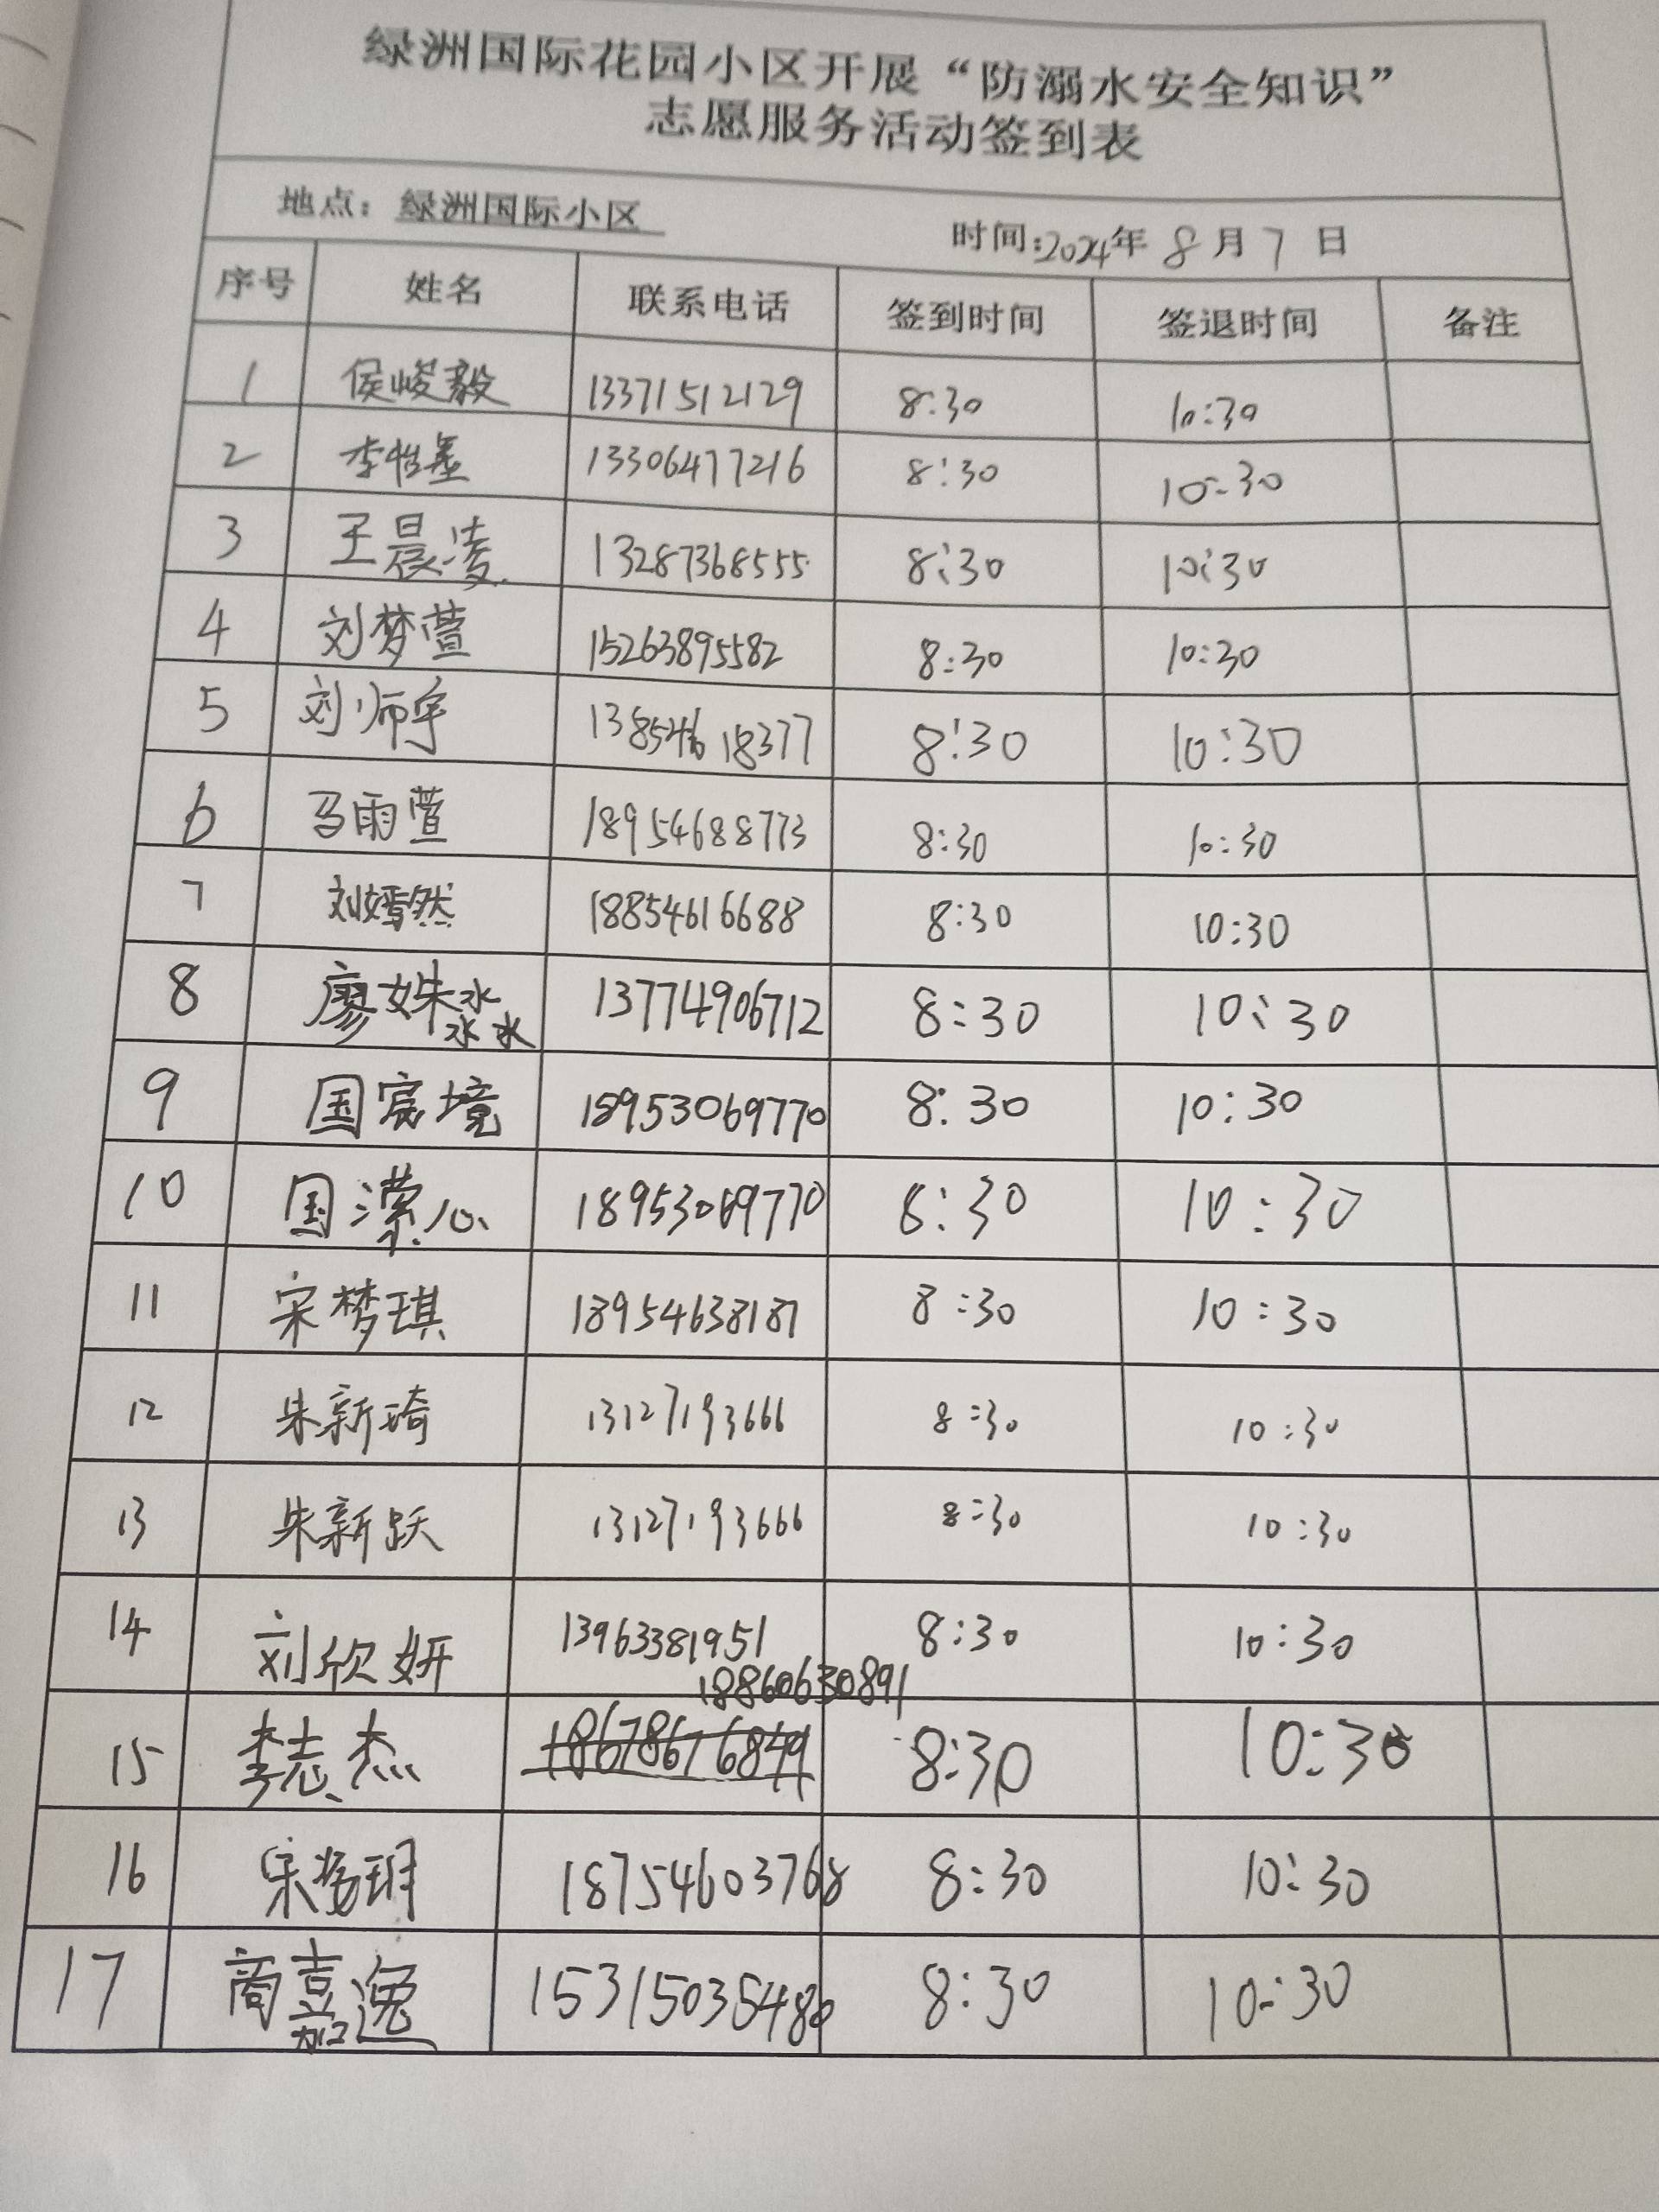 绿洲国际花园小区开展“防溺水安全知识”
志愿服务活动签到表
地点：绿洲国际小区 时间:2024年 8 月 7 日
序号 姓名 联系电话 签到时间 签退时间 备注
1 侯峻毅 13371512129 8:30 10:30
2 李怡墨 13306477216 8:30 10:30
3 王晨凌 13287368555 8:30 10:30
4 刘梦萱 15263895582 8:30 10:30
5 刘师宇 13854618377 8:30 10:30
6 马雨萱 18954688773 8:30 10:30
7 刘嫣然 18854616688 8:30 10:30
8 廖姝淼 13774906712 8:30 10:30
9 国宸境 18953069770 8:30 10:30
10 国潆心 18953069770 8:30 10:30
11 宋梦琪 18954638187 8:30 10:30
12 朱新琦 13127193666 8:30 10:30
13 朱新跃 13127193666 8:30 10:30
14 刘欣妍 13963381951 8:30 10:30
18860630891
15 李志杰 18678676849 8:30 10:30
16 宋梦玥 18754603768 8:30 10:30
17 商嘉逸 15315035480 8:30 10:30